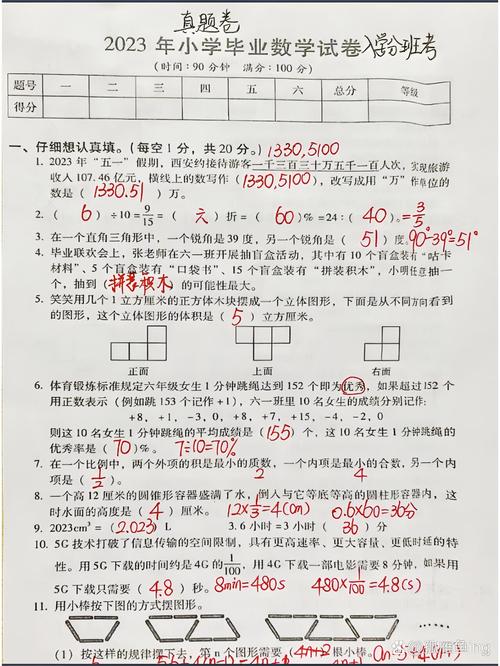 真题卷
2023 年小学毕业数学试卷 入学分班考
(时间:90 分钟 满分:100 分)
题号 一 二 三 四 五 六 总分 等级
得分
一、仔细想认真填。(每空 1 分，共 20 分。) 1330,5100
1. 2023 年“五一”假期，西安约接待游客一千三百三十万五千一百人次，实现旅游
收入 107.46 亿元，横线上的数写作(1330,5100)，改写成用“万”作单位的
数是(1330.51)万。
2. ( 6 )÷10=9/15=( 六 )折=( 60 )%=24:( 40 )。=3/5
3. 在一个直角三角形中，一个锐角是 39 度，另一个锐角是( 51 )度。90°-39°=51°
4. 毕业联欢会上，张老师在六一班开展抽盲盒活动，其中有 10 个盲盒装有“咕卡
材料”、5 个盲盒装有“口袋书”、15 个盲盒装有“拼装积木”，小明任意抽一
个，抽到(拼装积木)的可能性最大。
5. 笑笑用几个 1 立方厘米的正方体木块摆成一个立体图形，下面是从不同方向看到
的图形，这个立体图形的体积是( 5 )立方厘米。
正面 上面 右面
6. 体育锻炼标准规定六年级女生 1 分钟跳绳达到 152 个即为优秀，如果超过 152 个
用正数表示（例如跳 153 个记作+1），六一班里 10 名女生的成绩分别记作：
+8，+1，-3，0，+8，+7，+15，-4，-2，0
则这 10 名女生 1 分钟跳绳的平均成绩是(155)个，这 10 名女生 1 分钟跳绳的
优秀率是( 70 )%。 7÷10=70%
7. 在一个比例中，两个外项的积是最小的质数，一个内项是最小的合数，另一个内
项是( 1/2 )。 2 4
8. 一个高 12 厘米的圆锥形容器盛满了水，倒入与它等底等高的圆柱形容器内，这
时水面的高度是( 4 )厘米。 12×1/3=4(cm) 0.6×60=36分
9. 2023cm³=(2.023)L 3.6 小时=3 小时( 36 )分
10. 5G 技术打破了信息传输的空间限制，具有更高速率、更大容量、更低时延的特
性。用 5G 下载的时间约是 4G 的1/100，用 4G 下载一部电影需要 8 分钟，如果用
5G 下载只需要( 4.8 )秒。8min=480s 480×1/100=4.8(s)
11. 用小棒按下图的方式摆图形。
(1) 按这样的规律摆下去，第 n 个图形需要(4n+2)根小棒。